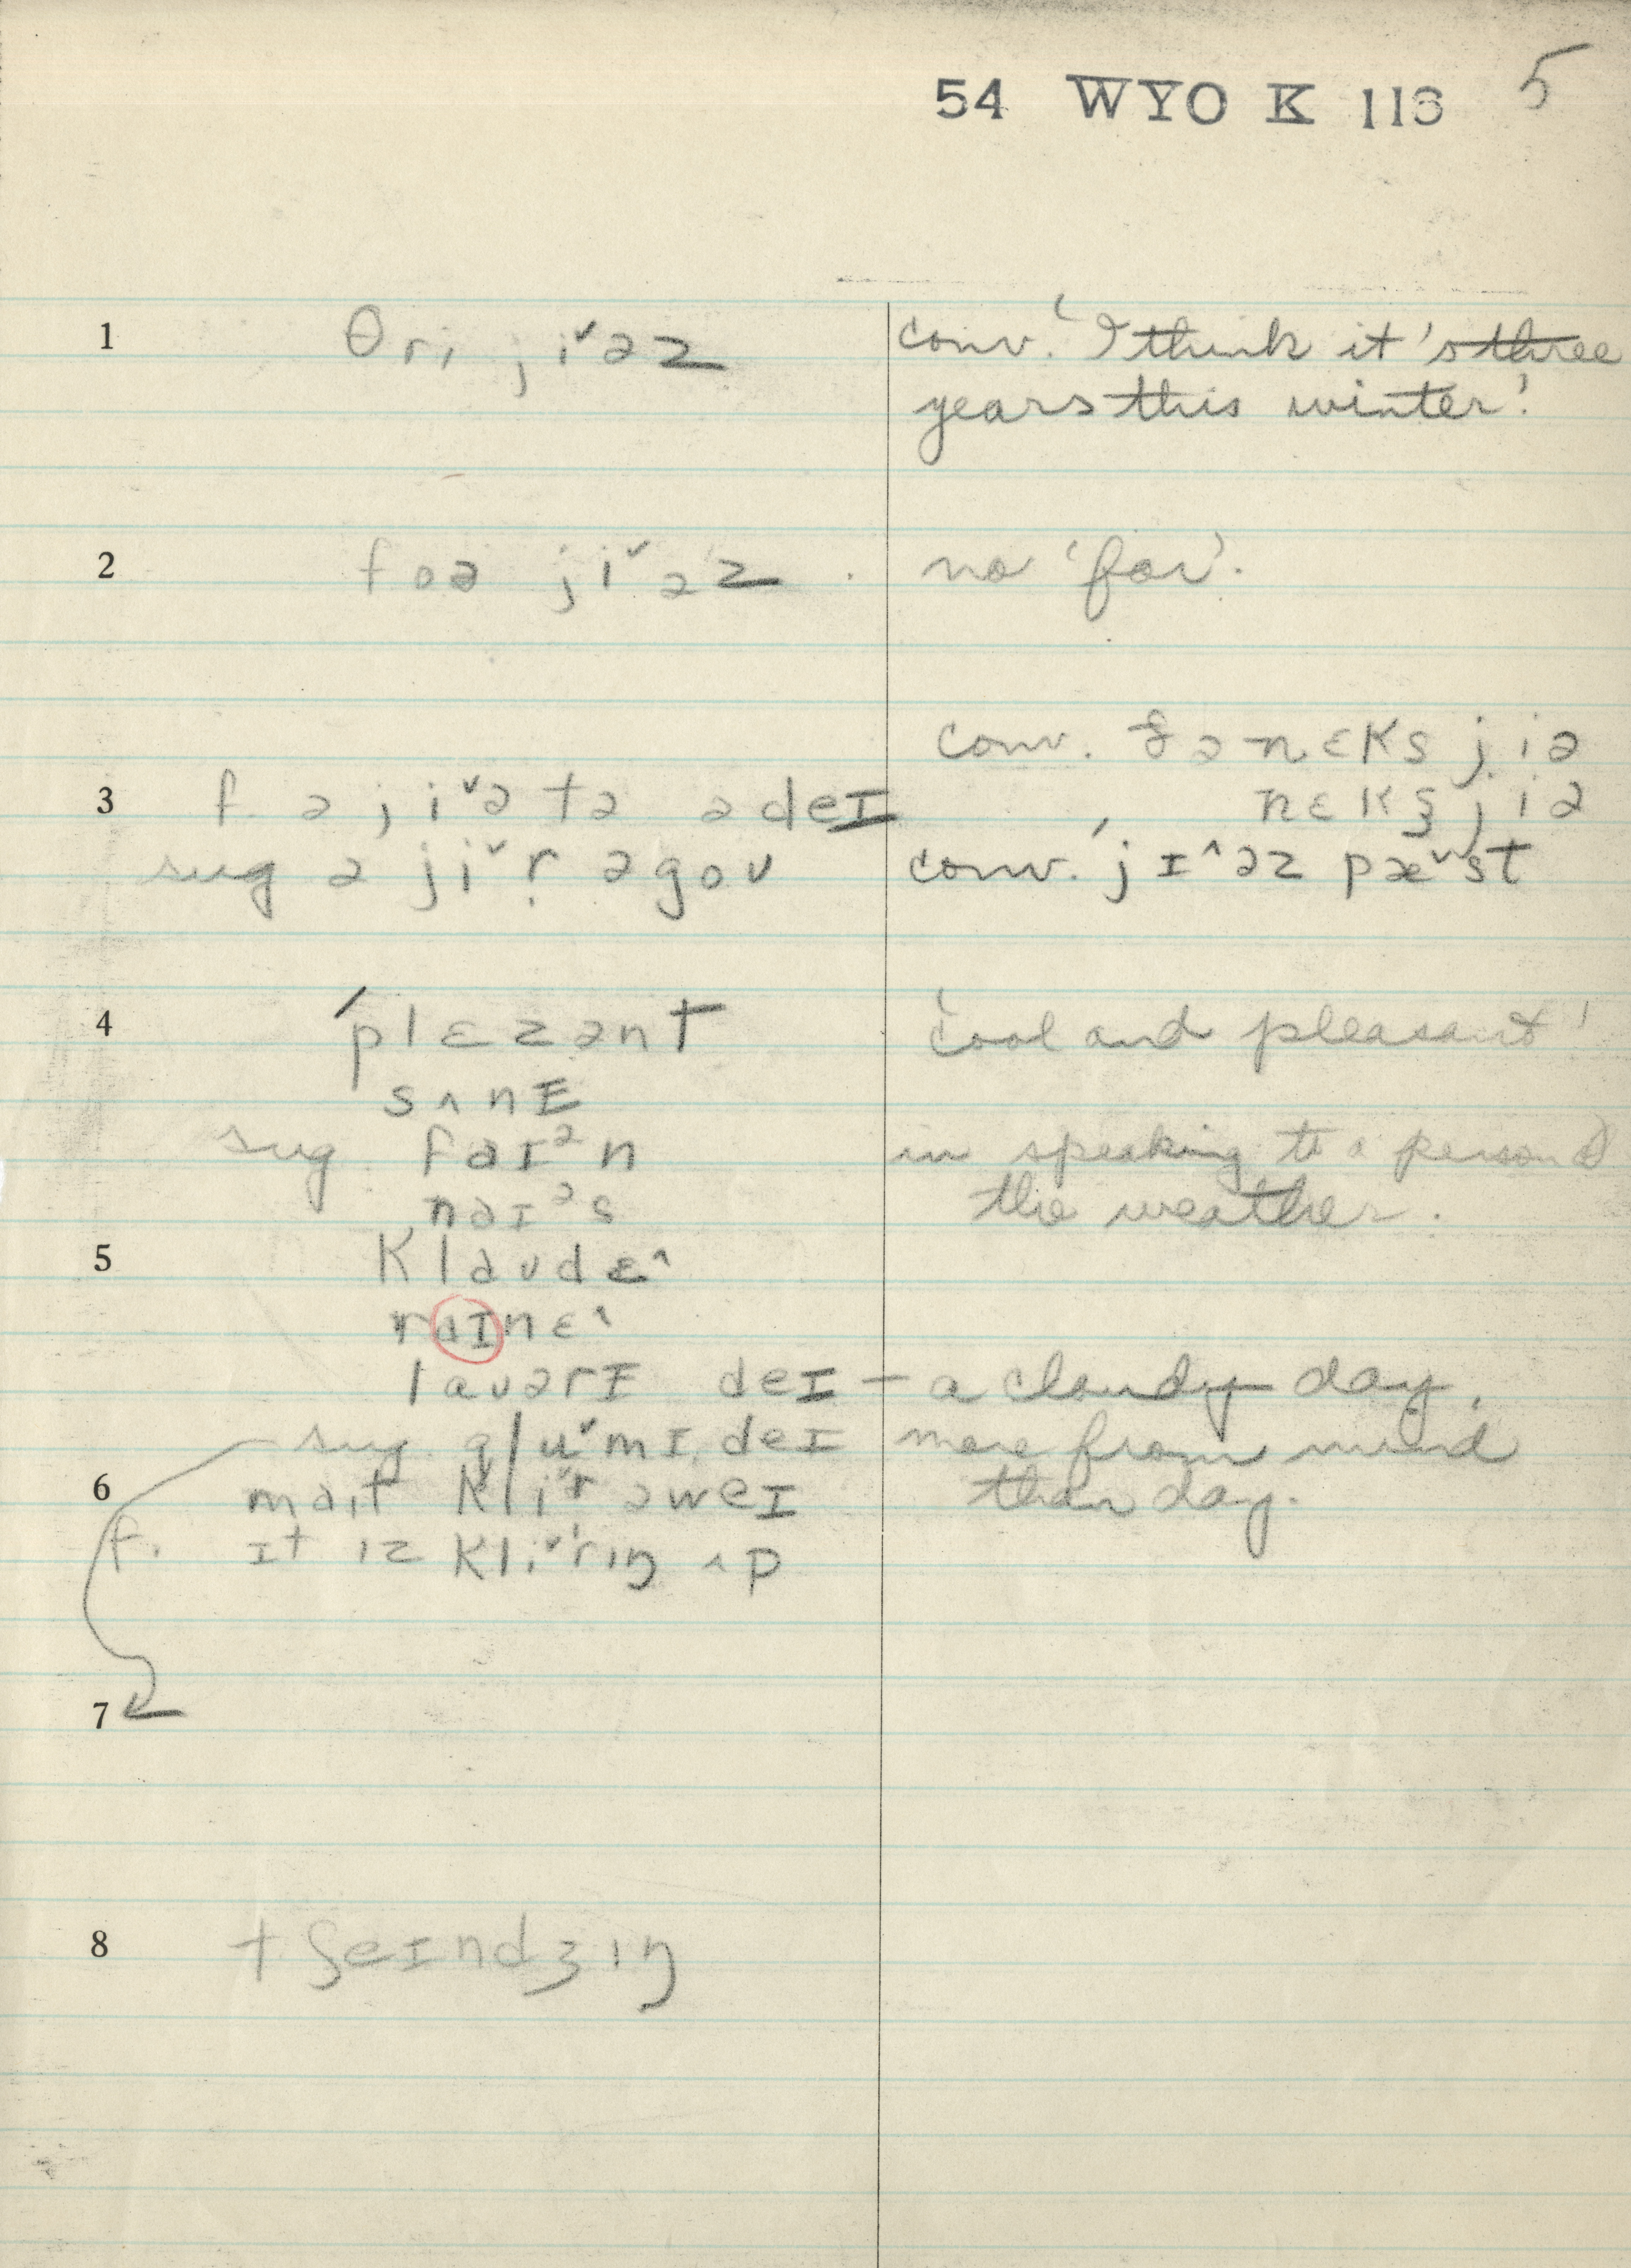 54 WYO K 113 5
1 θri ji˅əz conv. 'I think it's three
years this winter.'
2 foə ji˅əz . no 'for'.
conv. ðə nɛks jiə
3 f. ə ji˅ə tə ə deɪ nɛkʂ jiə
sug ə ji˅r̩ əgoʊ conv. ˈjɪ^əz pæ˅st
4 ˈplɛzənt 'cool and pleasant'
sʌnɪ
sug. faɪᵊn in speaking to a person of
naɪᵊs the weather.
5 klaʊdɛ^
raɪnɛ^
laʊərɪ deɪ – a cloudy day.
sug. glu˅mɪ deɪ more from mind
6 mait kli˅r əweɪ than day.
f. ɪt ɪz kli˅rɪŋ ʌp
7
8 tʃeɪndʒɪŋ